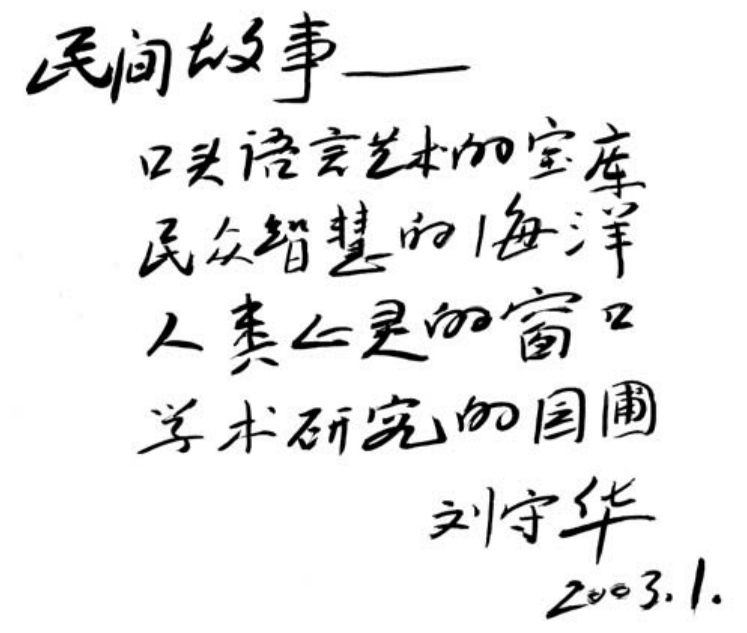 民间故事——
口头语言艺术的宝库
民众智慧的海洋
人类心灵的窗口
学术研究的园圃
刘守华
2003.1.